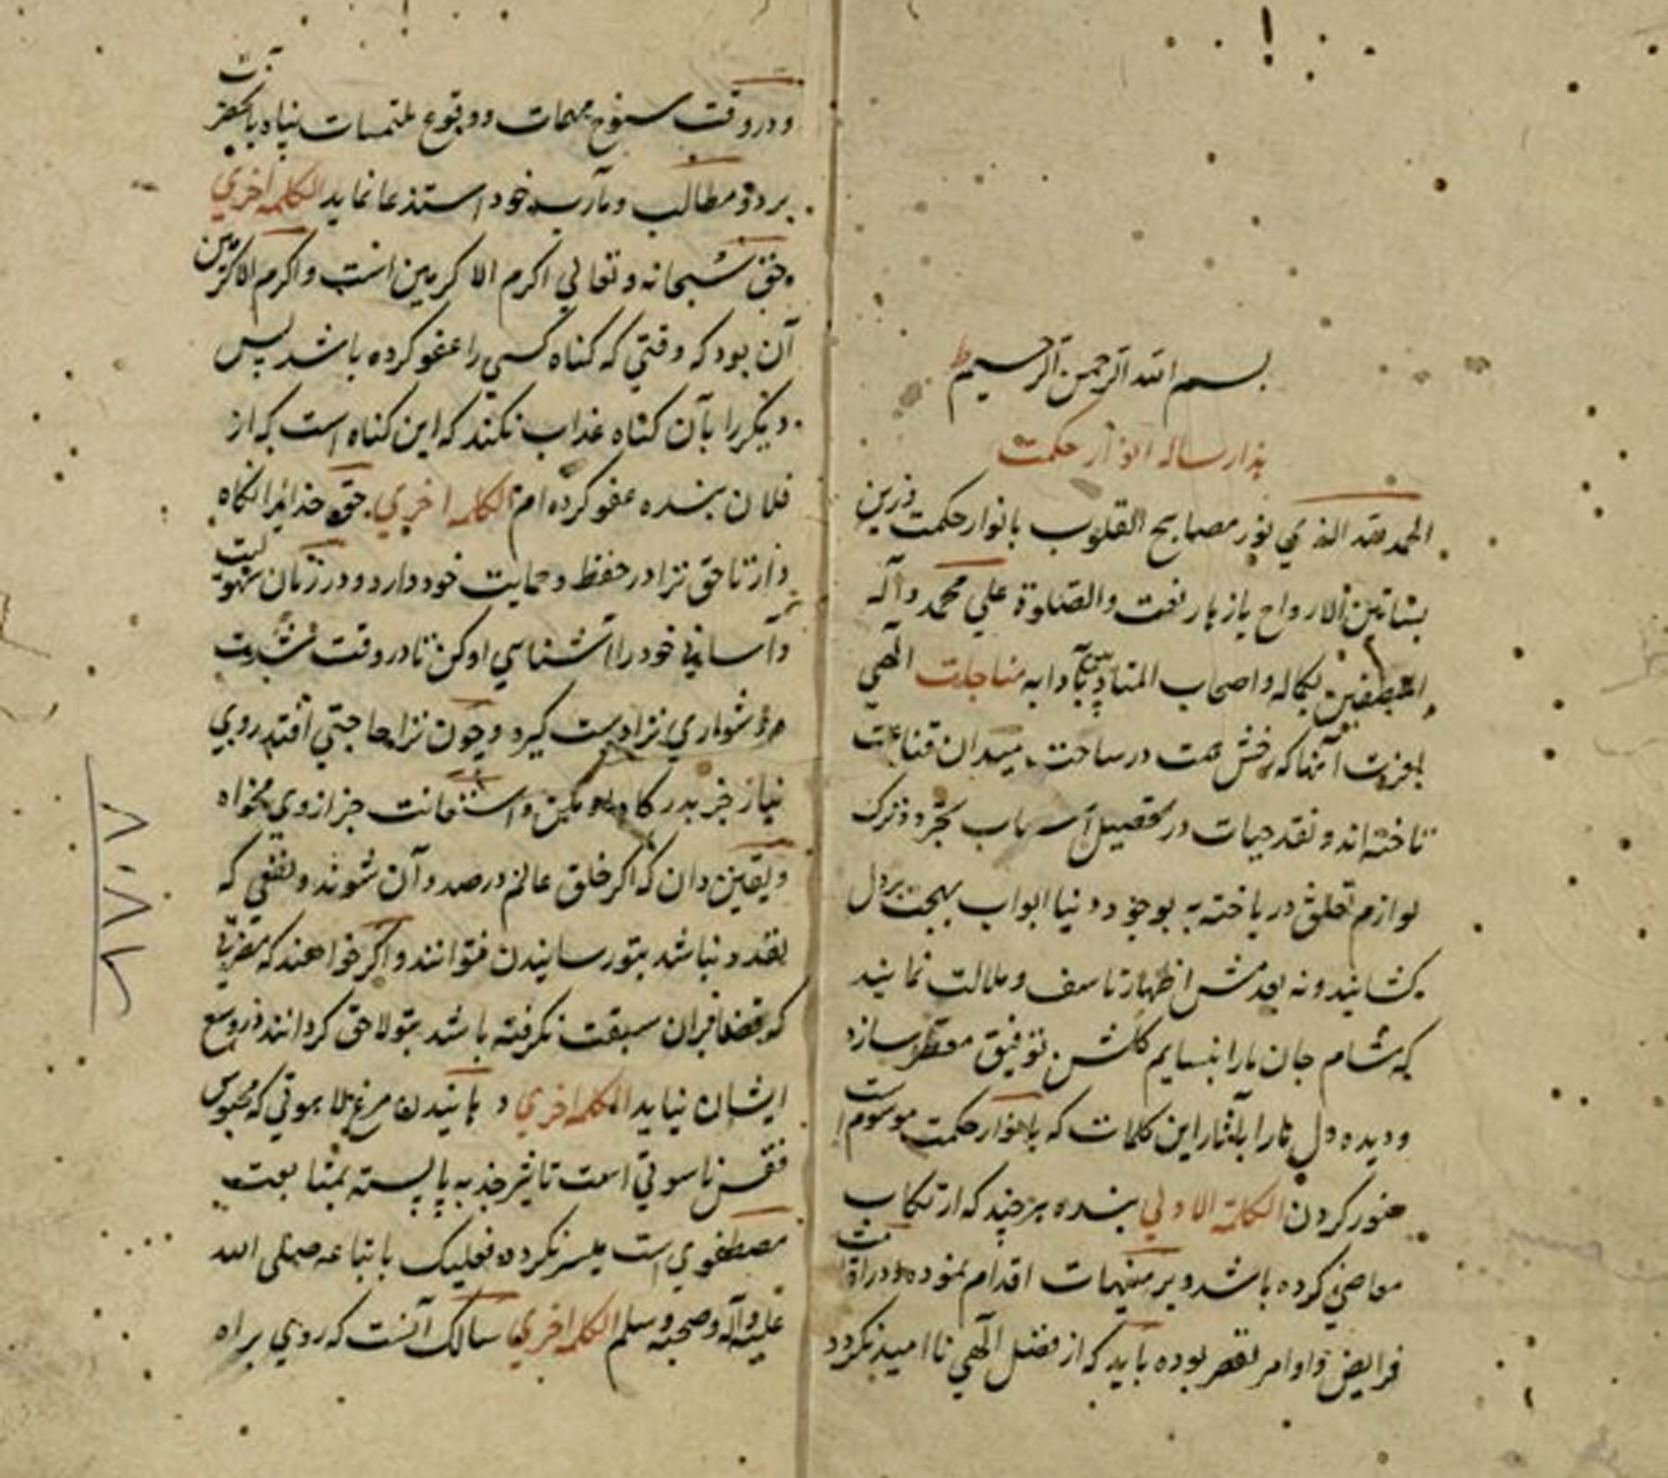 بسم الله الرحمن الرحیم
هذا رساله انوار حکمت
الحمد لله الذي نور مصابیح القلوب بانوار حکمت و زین
بساتین الارواح بازهار نعت والصلوة علي محمد وآله
المصطفین بکماله واصحاب المتادبین بآدابه مناجات الهي
بعزت آنها که رخش همت در ساحت میدان قناعت
تاخته اند و نقد حیات در تحصیل اسباب تجرد و ترک
لوازم تعلق درباخته به بوجود دنیا ابواب بهجت بر دل
کشایند و نه بعدمش اظهار تاسف و ملالت نمایند
که مشام جان ما را بنسایم کلشن توفیق معطر سازد
و دیده دل ما را بآثار این کلمات که بانوار حکمت موسوم است
منور کردن الکلمة الاولي بنده هر چند که ارتکاب
معاصي کرده باشد و بر منهیات اقدام نموده و در
فرایض و اوامر مقصر بوده باید که از فضل الهي نا امید نکردد
و در وقت سنوح مهمات و وقوع ملتمسات پناه بآنحضرت
برد و مطالب و مآرب خود استدعا نماید الکلمه اخري
حق سبحانه و تعالي اکرم الاکرمین است و اکرم الاکرمین
آن بود که وقتي که کناه کسي را عفو کرده باشد پس
دیکر را بآن کناه عذاب نکند که این کناه است که از
فلان بنده عفو کرده ام الکلمه اخري حق خدایرا نکاه
دار تا حق ترا در حفظ و حمایت خود دارد و در زمان سهولیت
و آساني خود را آشناي او کن تا در وقت
دشواري ترا دست کیرد و چون ترا حاجتي افتد روي
نیاز جز بدرکاه او مکن و استعانت جز از وي مخواه
و یقین دان که اکر خلق عالم درصدد آن شوند و نفعي که
بقدر نباشد بتو رسانیدن نتوانند و اکر خواهند که مضرتي
که قضا بران سبقت نکرفته باشد بتو لاحق کردانند در وسع
ایشان نیاید الکلمه اخري رهانیدن مرغ لاهوتي که محبوس
قفس ناسوتي است تا تاثیر جذبه پابسته بمتابعت
مصطفوي است میسر نکرده فعلیک باتباعه صلی الله
علیه وآله وصحبه وسلم الکلمه اخري سالک آنست که روي براه